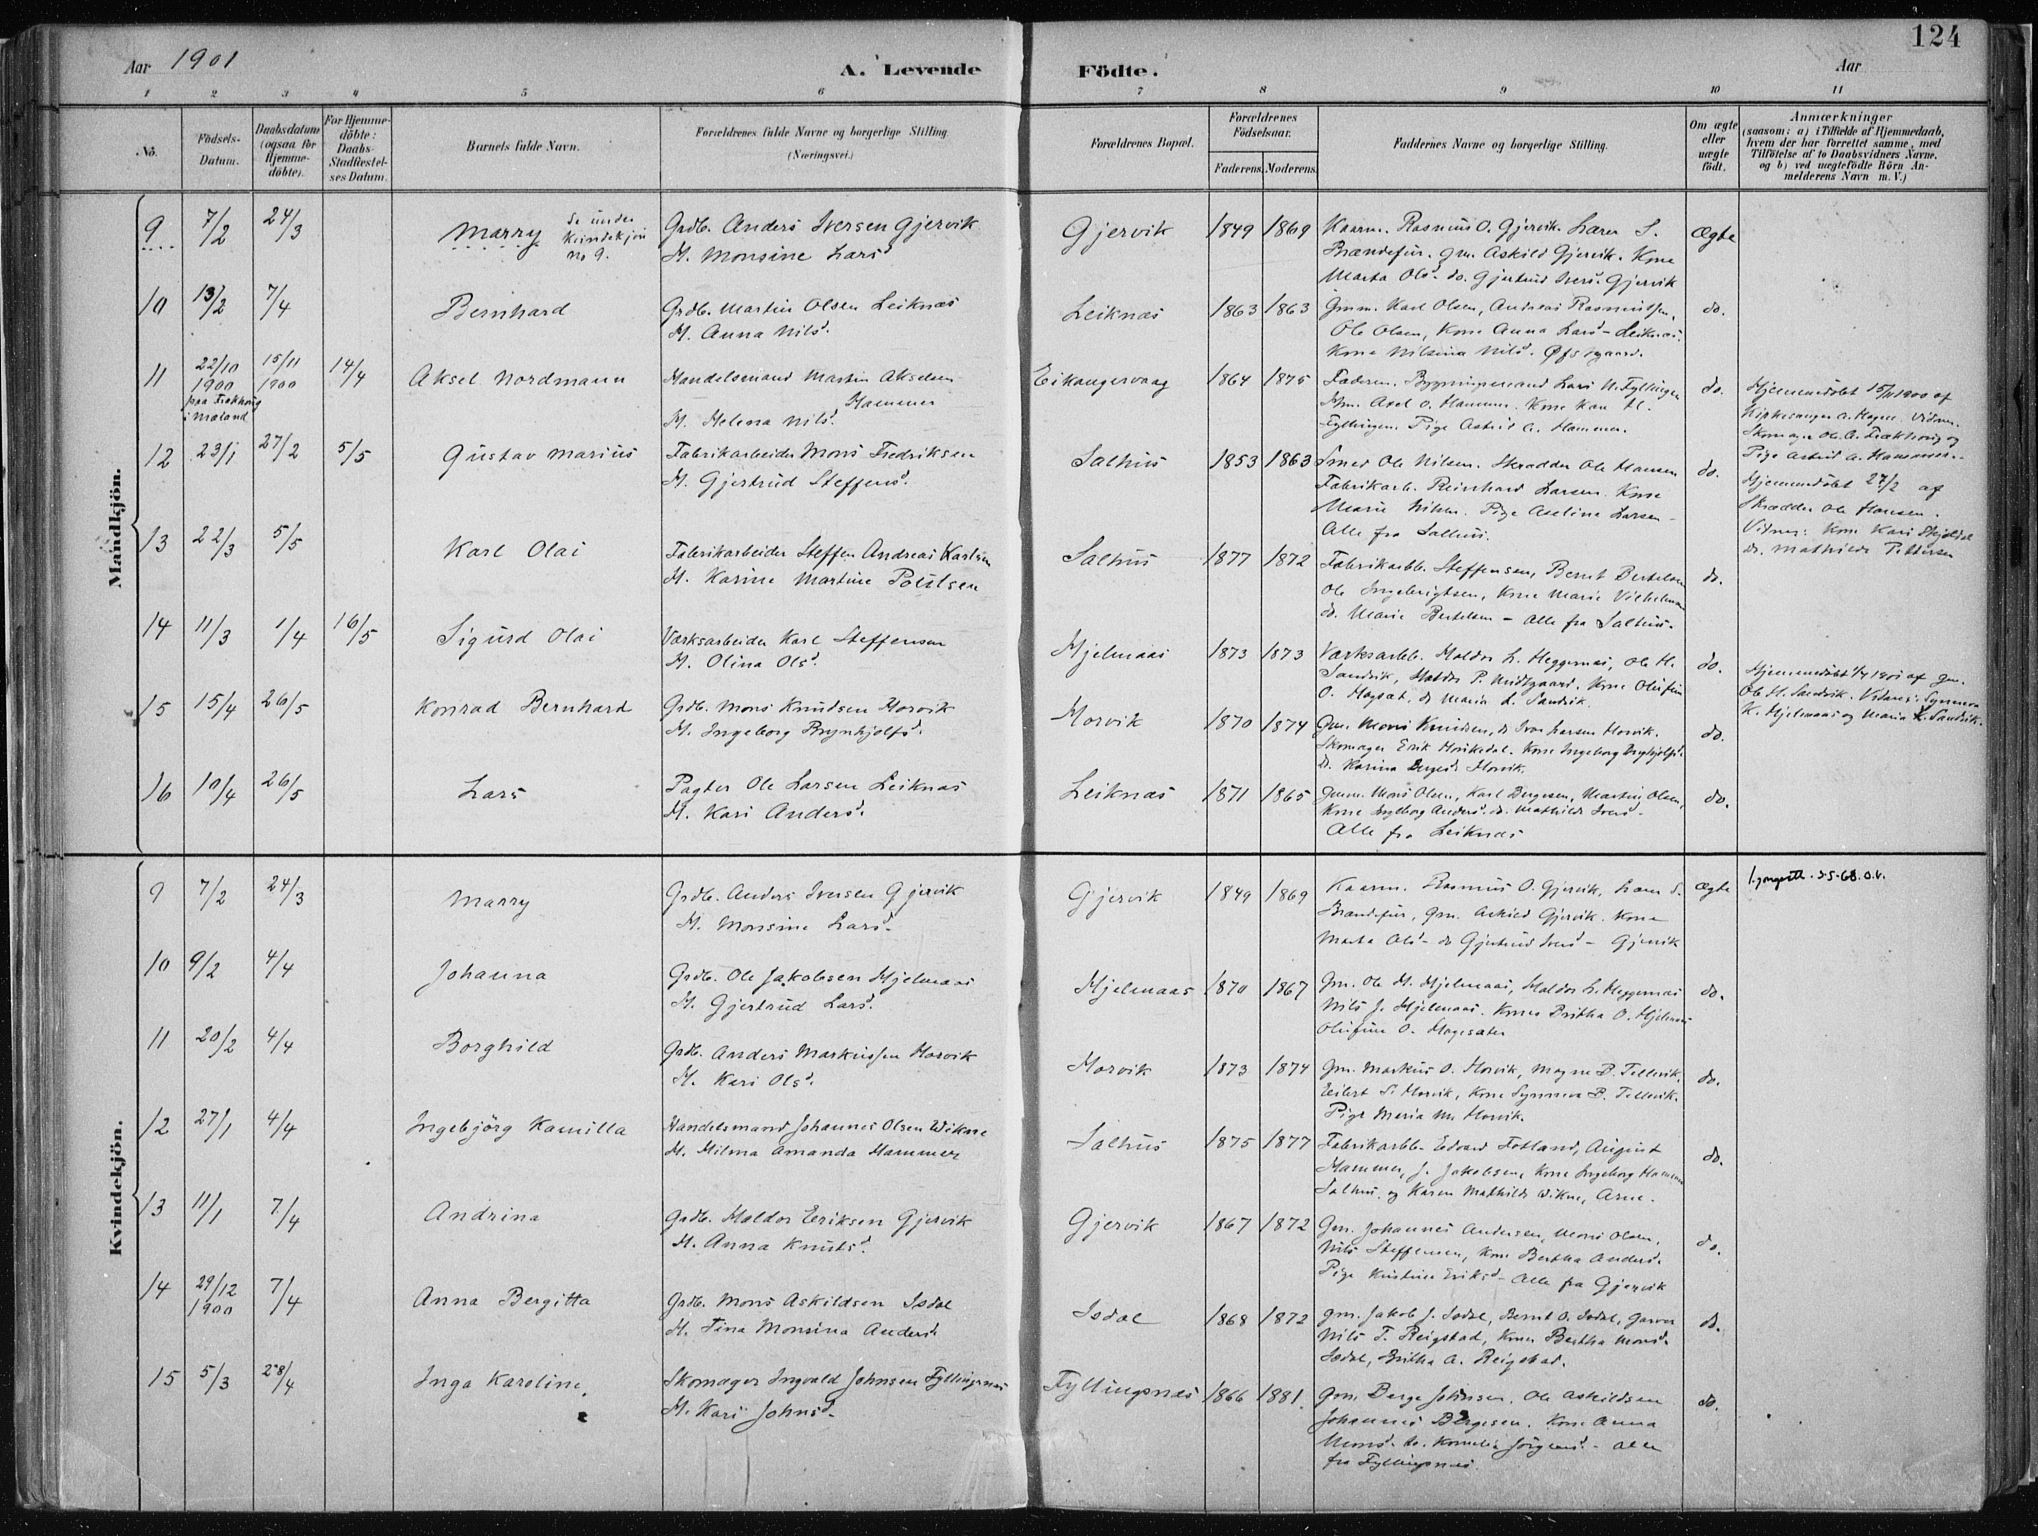 124
Aar 1901
A. Levende Födte.
Aar
1 2 3 4 5 6 7 8 9 10 11
No.
Födsels-Datum.
Daabsdatum (ogsaa for Hjemmedöbte).
For Hjemmedöbte: Daabs-Stadfæstelses Datum.
Barnets fulde Navn.
Forældrenes fulde Navne og borgerlige Stilling.
(Næringsvei.)
Forældrenes Bopæl.
Forældrenes Födselsaar.
Faderens. Moderens.
Faddernes Navne og borgerlige Stilling.
Om ægte eller uægte födt.
Anmærkninger
(saasom: a) i Tilfælde af Hjemmedaab, hvem der har forrettet samme, med Tilföielse af to Daabsvidners Navne, og b) ved uægtefödte Börn Anmelderens Navn m. V.)
Mandkjön.
9 7/2 24/3 Marry Se under Kvindekjön No 9. Grdb. Anders Iversen Gjervik Gjervik 1849 1869 Kaarm. Rasmus O. Gjervik. Lærer S. Ægte
H. Monsine Larsd. Brændefur. Gm. Askild Gjervik. Kone
Marta Olsd. do. Gjertrud Iversd. Gjervik
10 13/2 7/4 Bernhard Grdb. Martin Olsen Leiknæs Leiknæs 1863 1863 Gmm. Karl Olsen, Andreas Rasmussen, do.
H. Anna Nilsd. Ole Olsen, Kone Anna Larsd. Leiknæs.
Kone Nilsina Nilsd. Øfstgaard.
11 22/10 1900 15/11 1900 14/4 Aksel Nordmann Handelsmand Martin Akselsen Hammer Eikangervaag 1864 1875 Faderen. Bygningsmand Lars N. Fyllingen do. Hjemmedöbt 15/11 1900 af
H. Helena Nilsd. Hm. Axel O. Hammer. Kone Kari H.
Fyllingen. Pige Astrid A. Hammer.
12 23/1 27/2 5/5 Gustav Marius Fabrikarbeider Mons Fredriksen Salhus 1853 1863 Smed Ole Nilsen. Skrædder Ole Hansen do. Hjemmedöbt 27/2 af
H. Gjertrud Steffensd. Fabrikarb. Reinhard Larsen. Kone Skrædder Ole Hansen.
Marie Nilsen. Pige Axeline Larsen
Alle fra Salhus.
do. Mathilde Pettersen
13 22/3 5/5 Karl Olai Fabrikarbeider Steffen Andreas Karlsen Salhus 1877 1872 Fabrikarbb. Steffensen, Bernt Bertelsen do.
H. Karine Martine Poulsen Ole Ingebrigtsen, Kone Marie Vilhelmsen
do. Marie Bertelsen - Alle fra Salhus.
14 11/3 1/4 16/5 Sigurd Olai Værksarbeider Karl Steffensen Hjelmaas 1873 1873 Værksarbb. Haldor L. Heggernes, Ole H. do. Hjemmedöbt 1/4 1901 af Gm.
H. Olina Olsd. Sandvik, Haldor P. Midtgaard. Kone Olufine Ole H. Sandvik. Vidner: Synneva
O. Hagesæt, do. Maria L. Sandvik. K. Hjelmaas og Maria L. Sandvik.
15 15/4 26/5 Konrad Bernhard Grdb. Mons Knudsen Horvik Horvik 1870 1874 Gm. Mons Knudsen, do. Ivar Larsen Horvik. do.
H. Ingeborg Brynhjolfsd. Skomager Erik Horvikdal. Kone Ingeborg Brynhjolfsd.
do. Karina Bergesd. Horvik.
16 10/4 26/5 Lars Pagter Ole Larsen Leiknæs Leiknæs 1871 1865 Gmm. Mons Olsen, Karl Bergesen, Martin Olsen, do.
H. Kari Andersd. Kone Ingeborg Andersd. do. Mathilde Iversd.
Alle fra Leiknæs
Kvindekjön.
9 7/2 24/3 Marry Grdb. Anders Iversen Gjervik Gjervik 1849 1869 Kaarm. Rasmus O. Gjervik, Lærer S. Ægte
H. Monsine Larsd. Brændefur, Gm. Askild Gjervik. Kone
Marta Olsd. do Gjertrud Iversd. - Gjervik
10 9/2 4/4 Johanna Grdb. Ole Jakobsen Hjelmaas Hjelmaas 1870 1867 Gm. Ole M. Hjelmaas, Haldor L. Heggernes do.
H. Gjertrud Larsd. Nils J. Hjelmaas. Koner Britha O. Hjelmaas
Olufine O. Hagesæter
11 20/2 4/4 Borghild Grdb. Anders Markussen Horvik Horvik 1873 1874 Gm. Markus O. Horvik, Magne B. Tellevik, do.
H. Kari Olsd. Eilert S. Horvik, Kone Synneva B. Tellevik.
Pige Maria M. Horvik.
12 27/1 4/4 Ingebjörg Kamilla Handelsmand Johannes Olsen Wikne Salhus 1875 1877 Fabrikarbb. Edvard Fotland, August do.
H. Hilma Amanda Hammer Hammer, J. Jakobsen, Kone Ingeborg Hammer
Salhus, og Karen Mathilde Wikne, Arne.
13 11/1 7/4 Andrina Grdb. Haldor Eriksen Gjervik Gjervik 1867 1872 Gm. Johannes Andersen, Mons Olsen, do.
H. Anna Knutsd. Nils Steffensen, Kone Bertha Andersd.
Pige Kristine Eriksd - Alle fra Gjervik
14 29/12 1900 7/4 Anna Bergitta Grdb. Mons Askildsen Isdal Isdal 1868 1872 Gm. Jakob J. Isdal, Bernt O. Isdal, Garver do.
H. Tina Monsina Andersd. Nils T. Reigstad, Koner Bertha Monsd.
Isdal, Britha A. Reigstad.
15 5/3 28/4 Inga Karoline Skomager Ingvald Johnsen Fyllingsnes Fyllingsnes 1866 1881 Gm. Berge Johnsen, Ole Askildsen do.
H. Kari Johnsd. Johannes Bergesen. Kone Anna
Monsd. do. Kornelia Jörgensd. - Alle
fra Fyllingsnes.